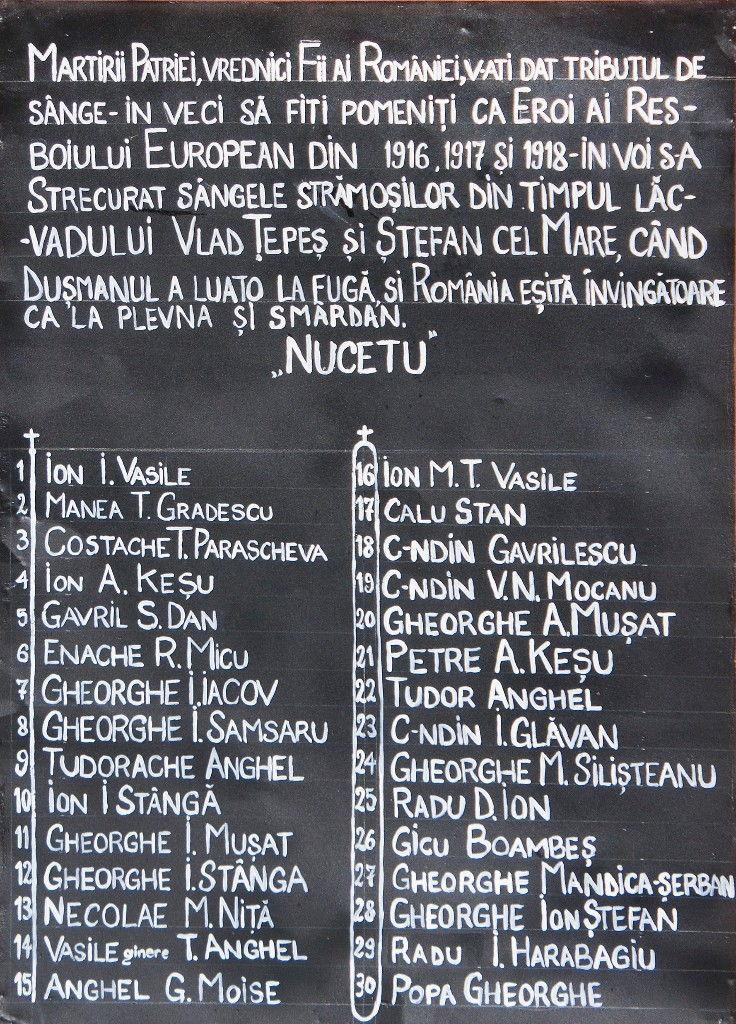 MARTIRII PATRIEI, VREDNICI FII AI ROMÂNIEI, V-ATI DAT TRIBUTUL DE
SÂNGE-IN VECI SĂ FITI POMENIȚI CA EROI AI RES-
BOIULUI EUROPEAN DIN 1916, 1917 ȘI 1918-IN VOI S-A
STRECURAT SÂNGELE STRĂMOȘILOR DIN TIMPUL LĂC-
-VADULUI VLAD ȚEPEȘ ȘI ȘTEFAN CEL MARE, CÂND
DUȘMANUL A LUATO LA FUGĂ, SI ROMÂNIA EȘITĂ ÎNVINGĂTOARE
CA LA PLEVNA ȘI SMÂRDAN.
„NUCETU"
1 ION I. VASILE
2 MANEA T. GRADESCU
3 COSTACHE T. PARASCHEVA
4 ION A. KEȘU
5 GAVRIL S. DAN
6 ENACHE R. MICU
7 GHEORGHE I. IACOV
8 GHEORGHE I. SAMSARU
9 TUDORACHE ANGHEL
10 ION I STÂNGĂ
11 GHEORGHE I. MUȘAT
12 GHEORGHE I. STÂNGA
13 NECOLAE M. NIȚĂ
14 VASILE ginere T. ANGHEL
15 ANGHEL G. MOISE
16 ION M.T. VASILE
17 CALU STAN
18 C-NDIN GAVRILESCU
19 C-NDIN V.N. MOCANU
20 GHEORGHE A. MUȘAT
21 PETRE A. KEȘU
22 TUDOR ANGHEL
23 C-NDIN I. GLĂVAN
24 GHEORGHE M. SILIȘTEANU
25 RADU D. ION
26 GICU BOAMBEȘ
27 GHEORGHE MANDICA-ȘERBAN
28 GHEORGHE ION ȘTEFAN
29 RADU I. HARABAGIU
30 POPA GHEORGHE